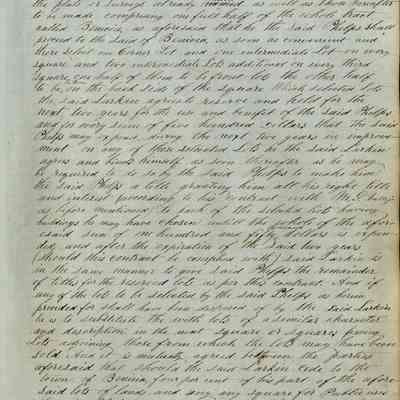 the plats or surveys already made as well as those hereafter
to be made comprising one full half of the whole tract
called Benicia, as aforesaid that he the said Phelps shall
proceed to the said of Benicia, as soon as convenient and
there select one Corner Lot and one intermediate Lot on every
square and two intermediate Lots additional on every third
square, one half of them to be front lots the other half
to be on the back side of the square which selected lots
the said Larkin agrees to reserve and hold for the
next two years for the use and benefit of the said Phelps
and for every sum of five hundred dollars that the said
Phelps may expend during the next two years in improve-
ment on any of these selected Lots he the said Larkin
agrees and binds himself as soon thereafter as he may
be required to do so by the said Phelps to make him
the said Phelps a title granting him all his right title
and interest according to his contract with
as before mentioned to each of the selected lots having
buildings he may have chosen until the whole of the afore-
said sum of one hundred and fifty dollars is expen-
ded and after the expiration of the said two years
(should this contract be complied with) said Larkin is
in the same manner to give said Phelps the remainder
of titles for the reserved lots as per this contract. And if
any of the lots to be selected by the said Phelps as herein
provided for shall have been disposed of by the said Larkin
he is to substitute the next lots of a similar character
and description in the next square or squares giving
Lots adjoining those from which the lots may have been
sold And it is mutually agreed between the parties
aforesaid that should the said Larkin cede to the
town of Benicia, four per cent of his part of the afore
said lots of land and any square for Public uses